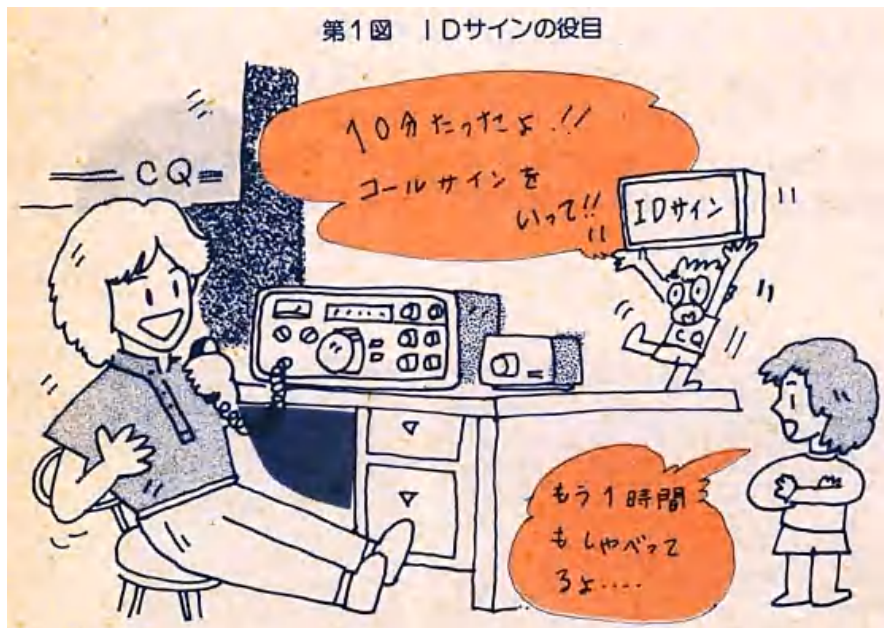 第1図 IDサインの役目
10分たったよ!!
コールサインを
いって!!
IDサイン
CQ
CQ
もう1時間
もしゃべって
るよ.....